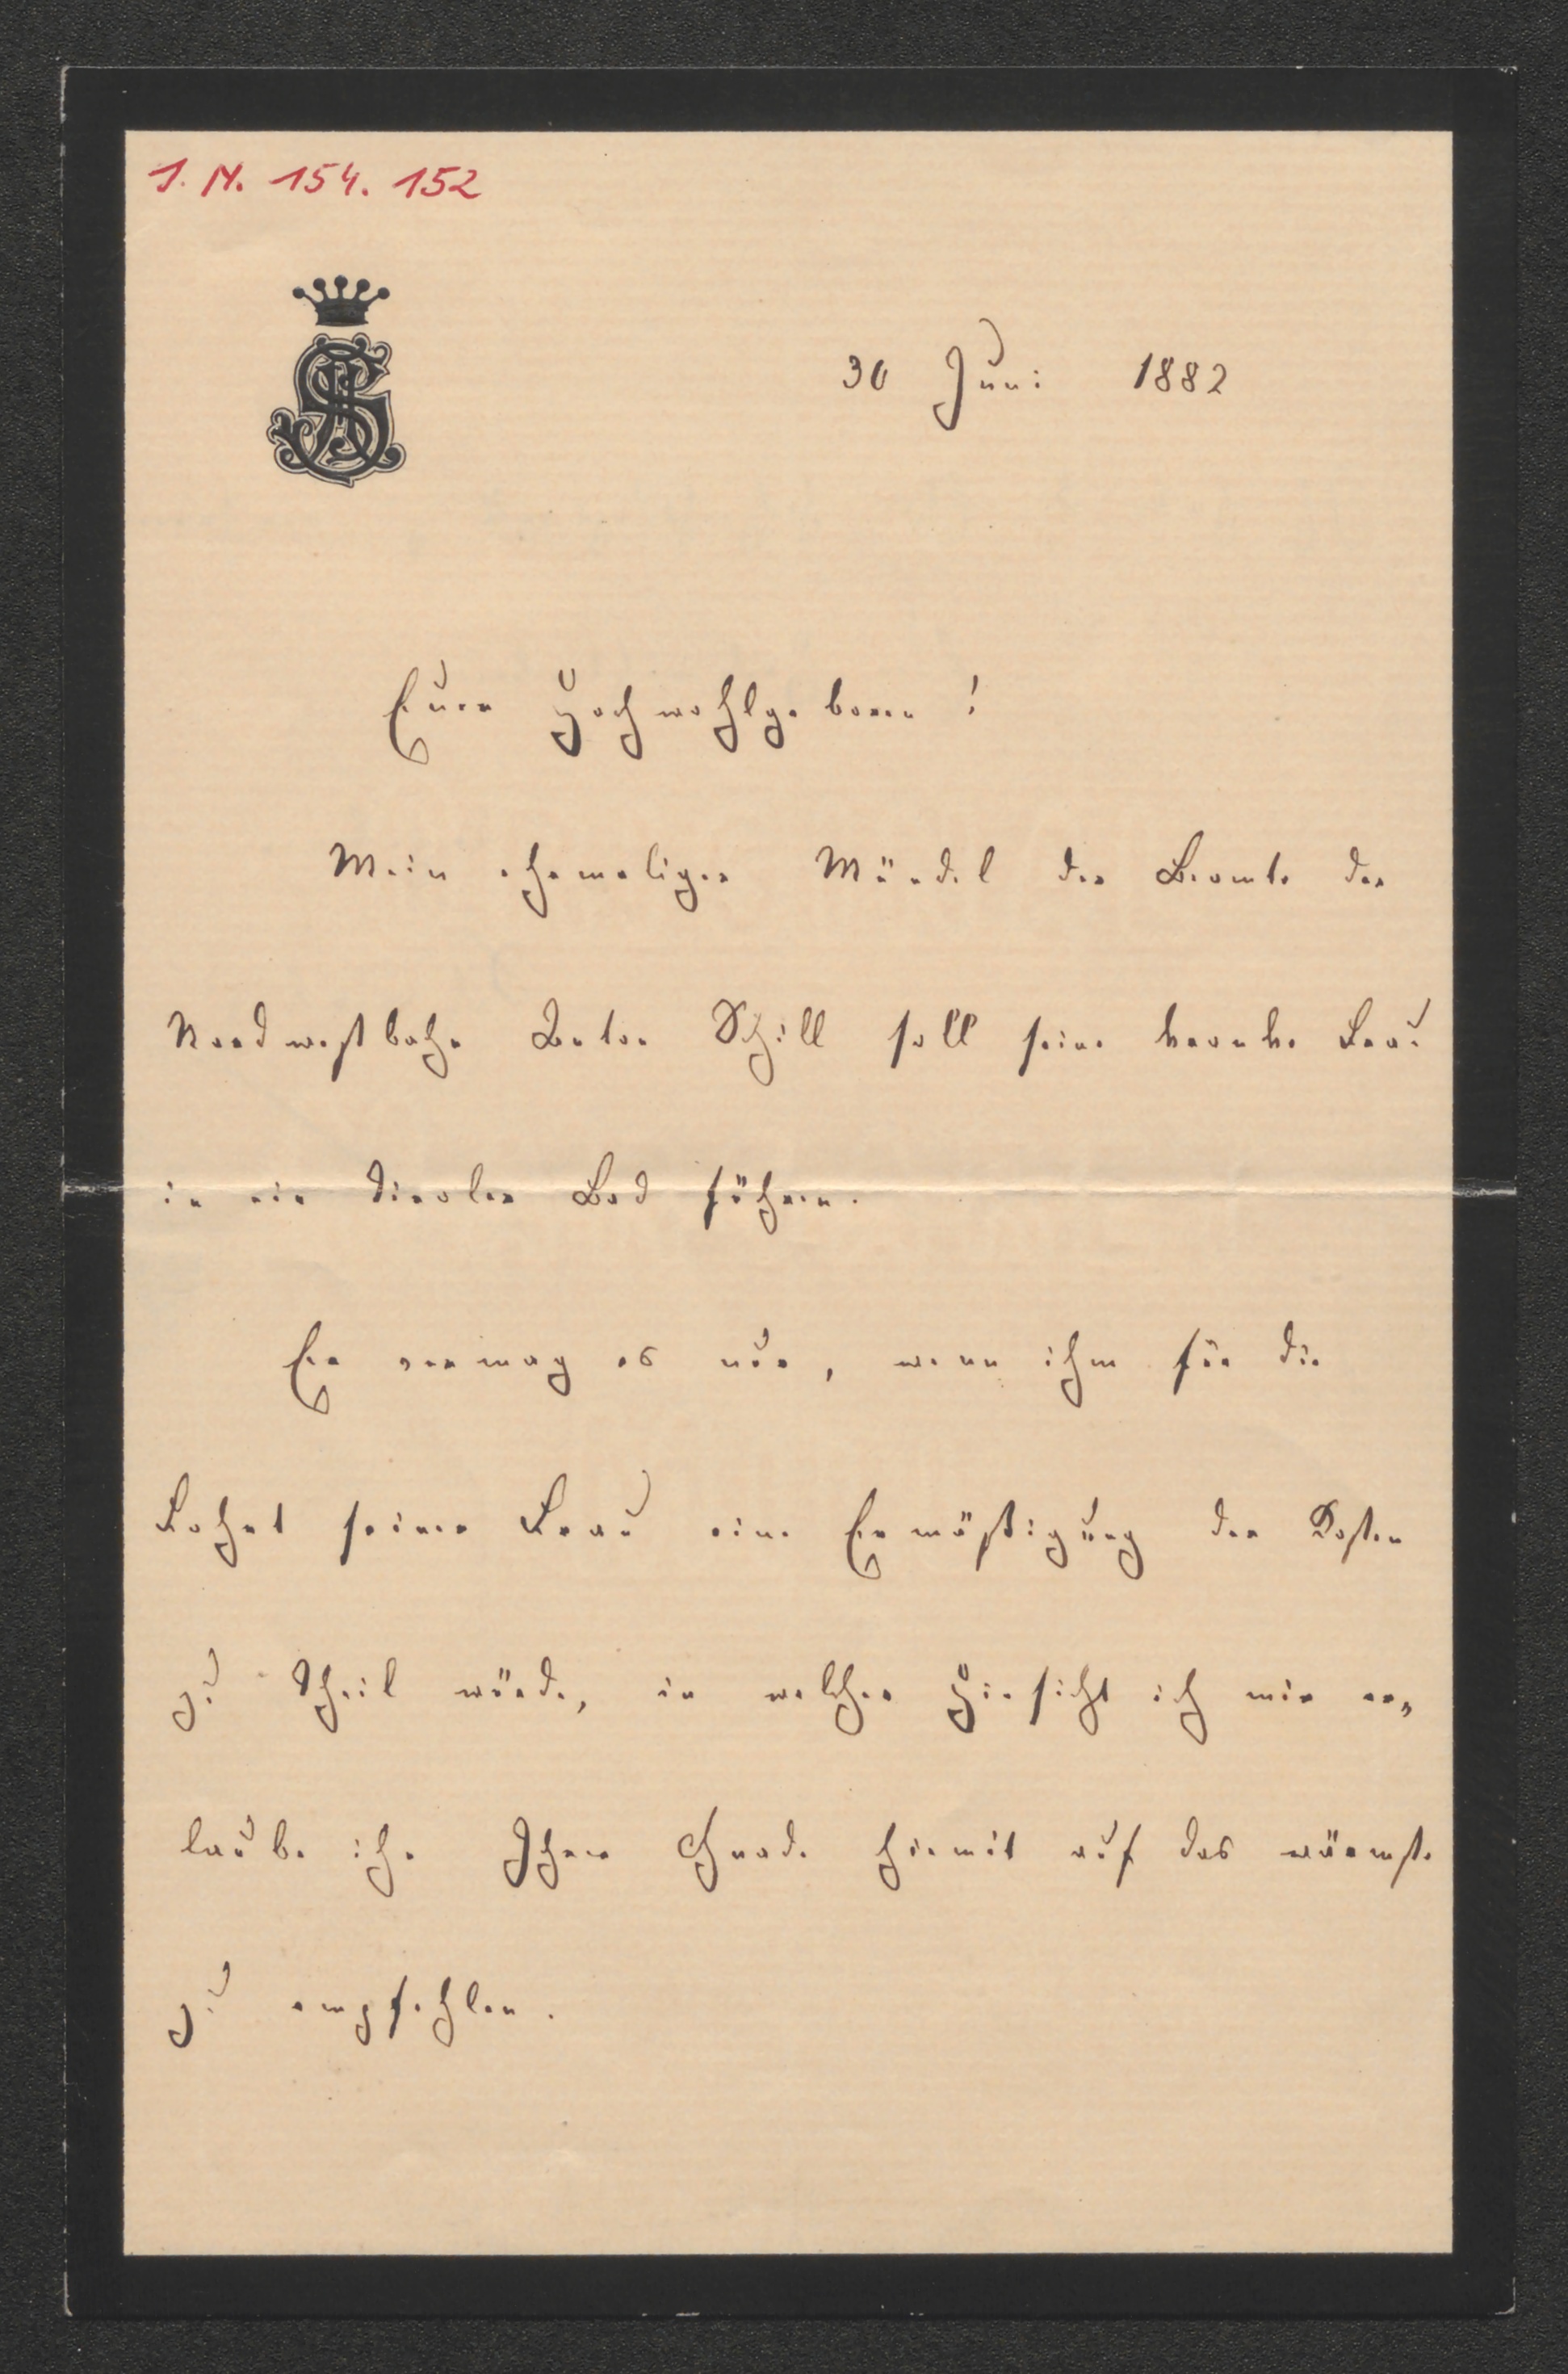 I. N. 154.152
30 Juni 1882
Euer Hochwohlgeboren!
Mein ehemaliger Mündel der Beamte der
Nordwestbahn Anton Schill soll seine kranke Frau
in ein Tiroler Bad führen.
Er vermag es nur, wenn ihm für die
Fahrt seiner Frau eine Ermäßigung der Kosten
zu Theil würde, in welcher Hinsicht ich mir er„
laube ihn Ihrer Gnade hiemit auf das wärmste
zu empfehlen.